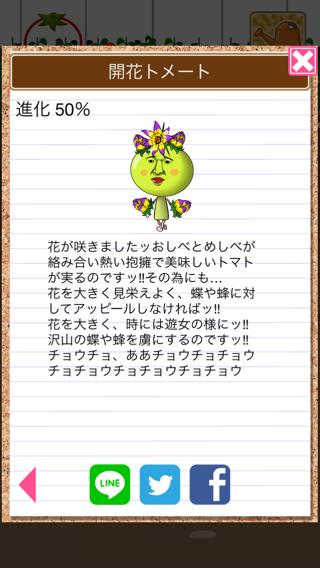 開花トメート
進化 50%
花が咲きましたッおしべとめしべが
絡み合い熱い抱擁で美味しいトマト
が実るのですッ!!その為にも…
花を大きく見栄えよく、蝶や蜂に対
してアッピールしなければッ!!
花を大きく、時には遊女の様にッ!!
沢山の蝶や蜂を虜にするのですッ!!
チョウチョ、ああチョウチョチョウ
チョチョウチョチョウチョチョウ
LINE